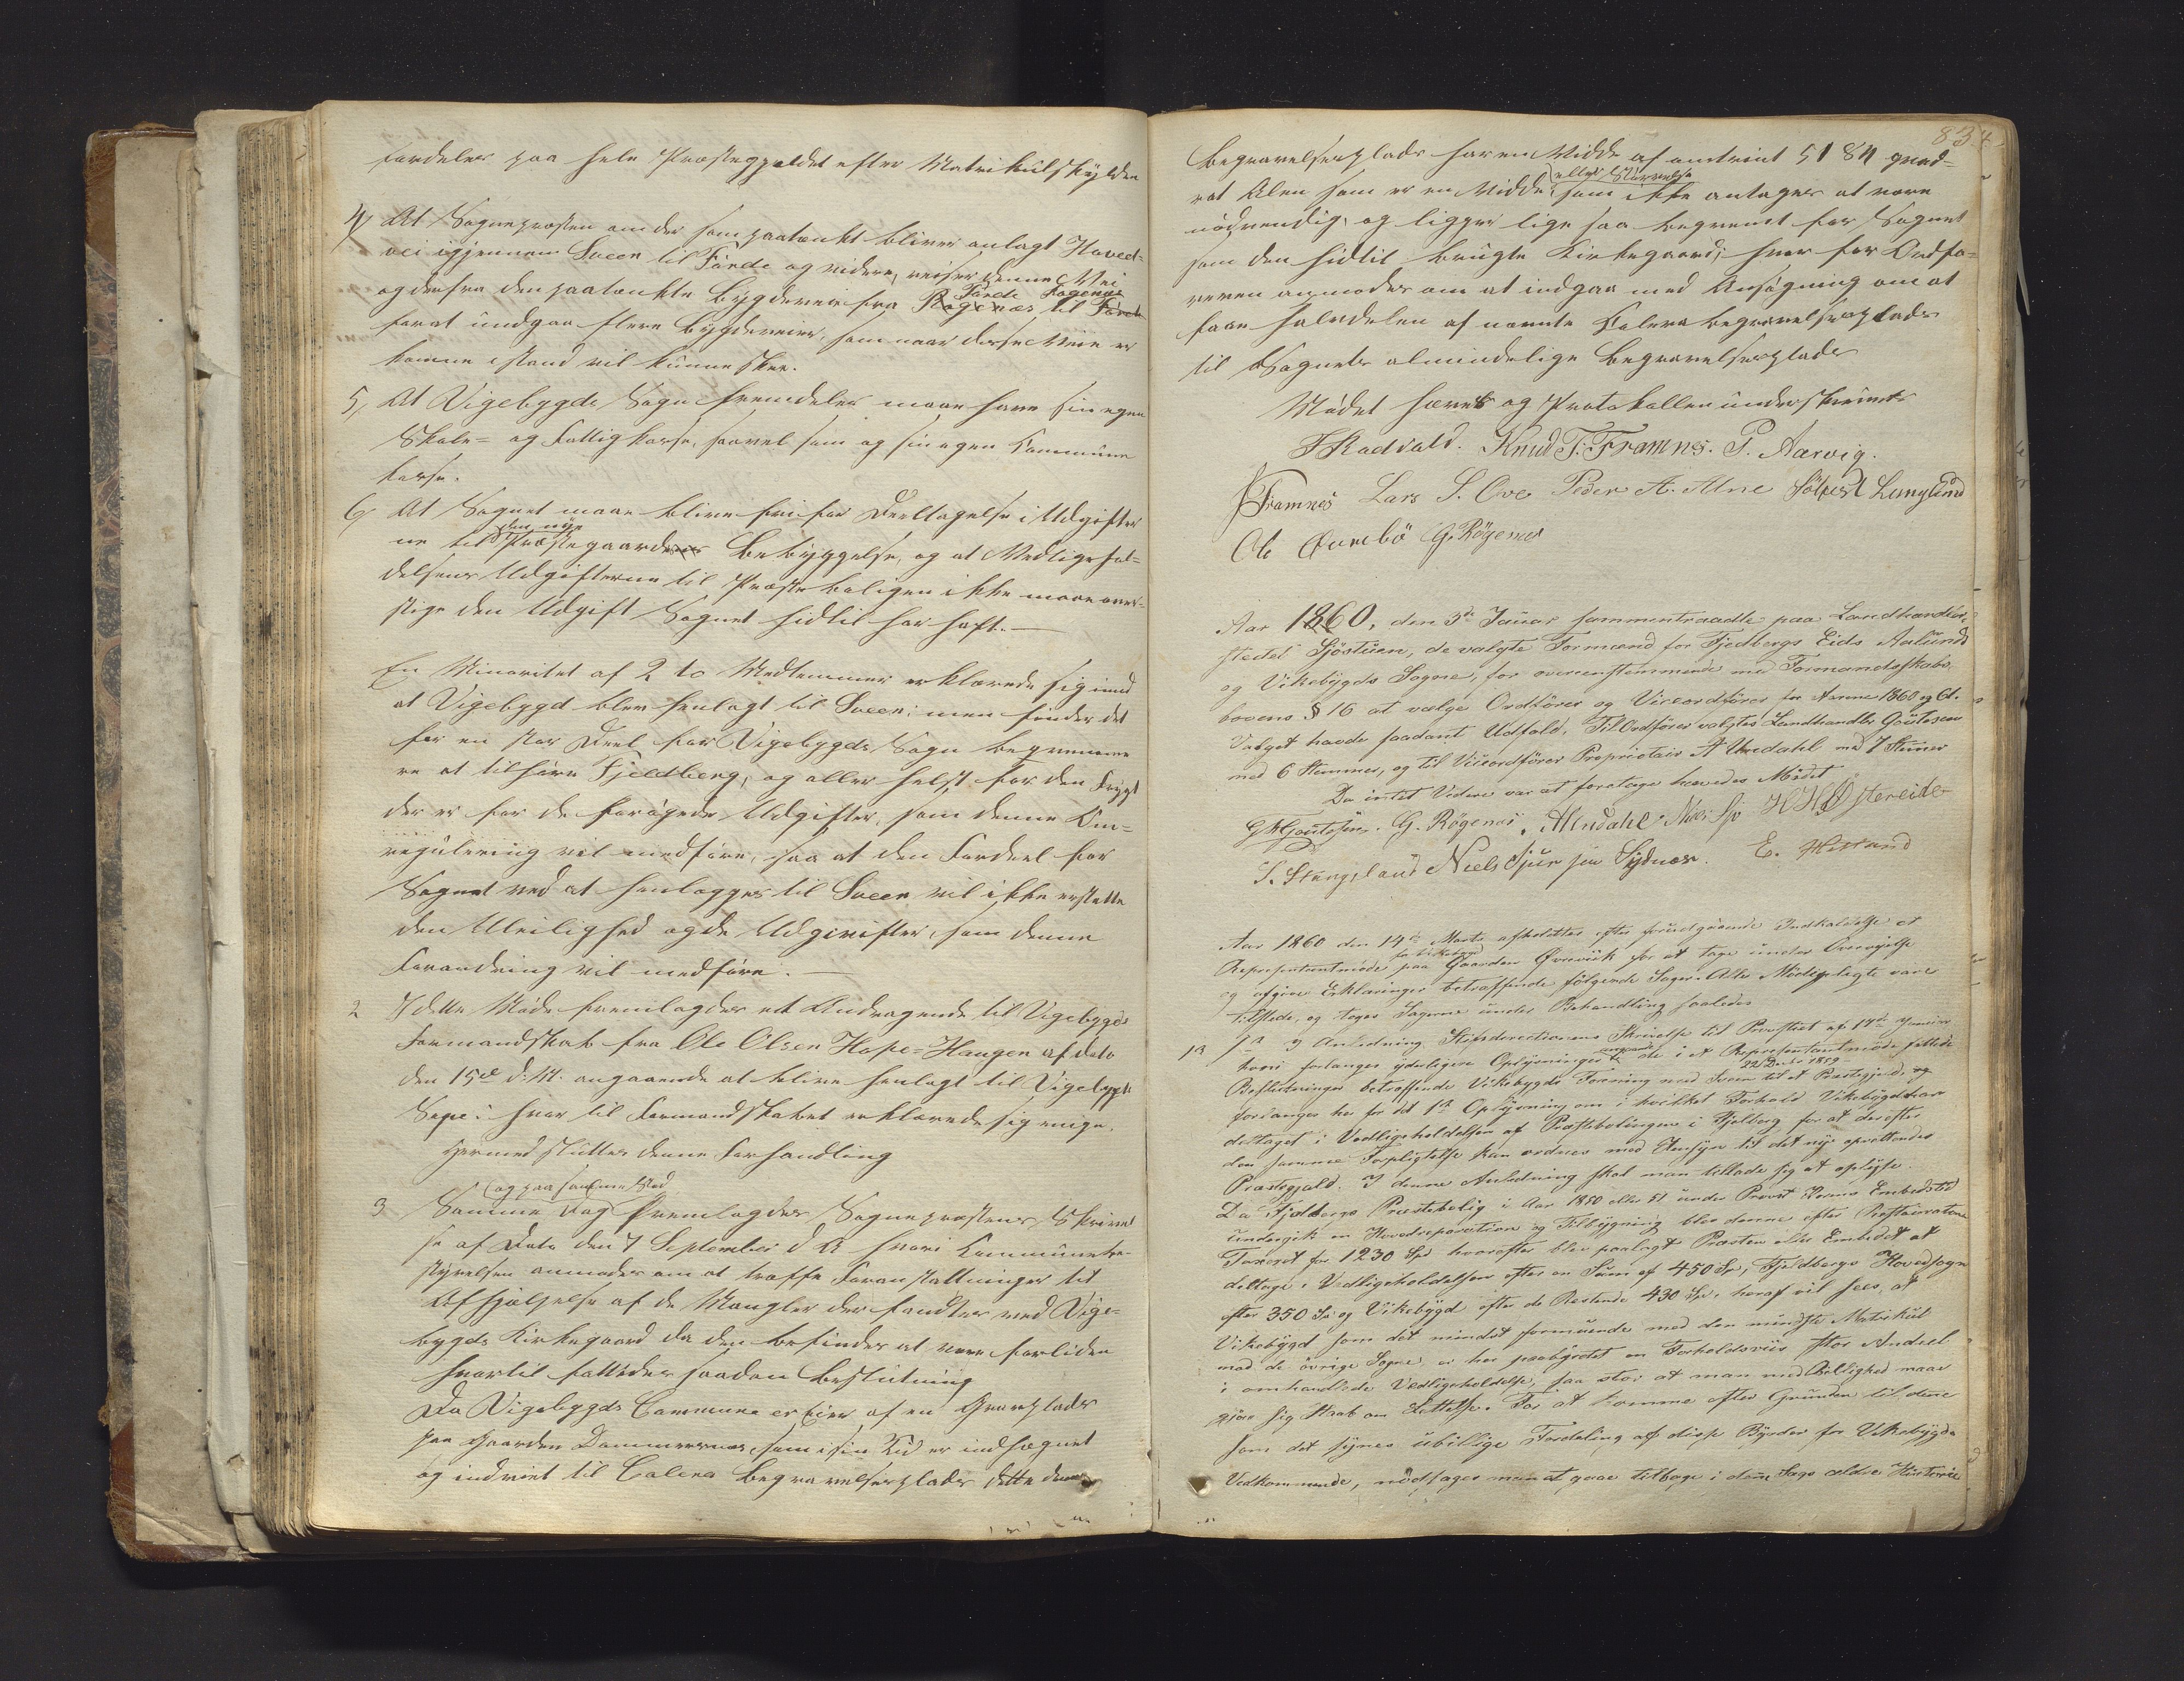 fordeles paa hele Præstegjeldet efter Matrikulskylden
4, At Sognepræsten om der som paatænkt bliver anlagt Hoved-
vei igjennem Sveen til Førde og videre, reiser denne Vei
og derfra den paatænkte Bygdevei fra Førde Røgenæs
forat undgaa flere Bygdeveier, som naar disse Veie er
komne istand vil kunne skee.
5, At Vigebygds Sogn fremdeles maae have sin egen
Skole- og Fattigkasse, saavel som og sin egen Kommune
kasse.
6, At Sognet maae blive fri for Deeltagelse i Udgifter
ne til den nye Præstegaards Bebyggelse, og at Vedligehol-
delsens Udgifterne til Præsteboligen ikke maae over-
stige den Udgift Sognet hidtil har havt. —
En Minoritet af 2 to Medlemmer erklærede sig imod
at Vigebygd blev henlagt til Sveen; men finder det
for en stor Deel for Vigebygds Sogn beqvemme
re at tilhøre Fjeldberg, og aller helst for den Frygt
der er for de forøgede Udgifter, som denne Om-
regulering vil medføre, saa at den Fordeel for
Sognet ved at henlægges til Sveen vil ikke erstatte
den Uleilighed og de Udgivifter, som denne
Forandring vil medføre. —
2 I dette Møde fremlagdes et Andragende til Vigebygds
Formandskab fra Ole Olsen Hope-Haugen af dato
den 15de d: M: angaaende at blive henlagt til Vigebygds
Sogn: hvor til Formandskabet erklærede sig enige.
Hermed sluttes denne Forhandling
3 Samme Dag (og paa samme Sted fremlagdes Sognepræstens Skrivel
se af Dato den 7 September d A hvori Kommunebe-
styrelsen anmodes om at træffe Foranstaltninger til
Afhjælpelse af de Mangler der fandtes ved Vige-
bygds Kirkegaard da den befindes at være forliden
hvortil fattedes saadan Beslutning
Da Vigebygds Commune er Eier af en Gravplads
paa Gaarden Dommersnæs, som i sin Tid er indhegnet
og indviet til Colera Begravelsesplads dette denne
83
Begravelsesplads har en Vidde af omtrent 5184 qvad-
rat Alen som er en Vidde (eller Størrelse som ikke antages at være
nødvendig, og ligger lige saa beqvemt for Sognet
som den hidtil brugte Kirkegaard; hvor for Ordfø-
reren anmodes om at indgaa med Ansøgning om at
faae halvdelen af nævnte Colera begravelsesplads
til Sognets almindelige Begravelsesplads
Mødet hævet og Protokollen underskrevet
Knud T. Framnes. P. Aarvig.
Framnes Lars S. Ove Peder A. Alne
Ole G. Røgenes
Aar 1860, den 3de Januar sammentraadte paa Landhandler
stedet Sjøstuen, de valgte Formænd for Fjeldbergs Eids Aalunds
og Vikebygds Sogne, for overensstemmende med Formandsskabs-
lovens § 16 at vælge Ordfører og Viceordfører for Aarene 1860 og 61.
Valget havde saadant Udfald, Til Ordfører valgtes Landhandler Gautesen
med 6 Stemmer, og til Viceordfører Proprietair A Undahl med 7 Stemmer
Da intet Videre var at foretage hævedes Mødet
G. Røgenes. Østereide
Niels Sjursen Sydnæs.
Aar 1860 den 14de Marts afholdtes efter forudgaaende Indkaldelse et
Repræsentantmøde for Vikebygd paa Gaarden Øvrevik for at tage under Overveielse
og afgive Erklæringer betræffende følgende Sager. Alle Mødepligtige vare
tilstede, og toges Sagerne under Behandling saaledes
1ste I Anledning Stiftsdirectionens Skrivelse til Provstiet af 17de Januar
hvori forlanges yderligere Oplysninger angaaende de i et Repræsentantmøde 22 Decbr 1859 fattede
Beslutninger betræffende Vikebygds Forening med Sveen til et Præstegjeld, og
forlanges her for det 1ste Oplysning om i hvilket Forhold Vikebygd har
deeltaget i Vedligeholdelsen af Præsteboligen i Fjelberg for at derefter
den samme Forpligtelse kan ordnes med Hensyn til det nye oprettendes
Præstegjæld. I denne Anledning skal man tillade sig at oplyse.
Da Fjelbergs Præstebolig i Aar 1850 eller 51 under Provst Embedstid
undergik en Hovedreparation og Tilbygning blev denne efter
Taxeret for 1230 Spd hvorefter blev paalagt Præsten eller Embedet at
deltage i Vedligeholdelsen efter en Sum af 450 Sp, Fjeldbergs Hovedsogn
efter 350 Sp og Vikebygd efter de Restende 430 Spd, heraf vil sees, at
Vikebygd som det mindst formuende med den mindste Matrikul
mod de øvrige Sogne, er her paabyrdet en Forholdsviis stor Andeel
i omhandlede Vedligeholdelse, saa stor at man med Billighed maae
gjøre sig Haab om Lettelse. For at komme efter Grunden til dene
som det synes ubillige Fordeling af disse Byrder for Vikebygds
Vedkommende, nødsages man at gaae tilbage i dene Sags ældre Historie